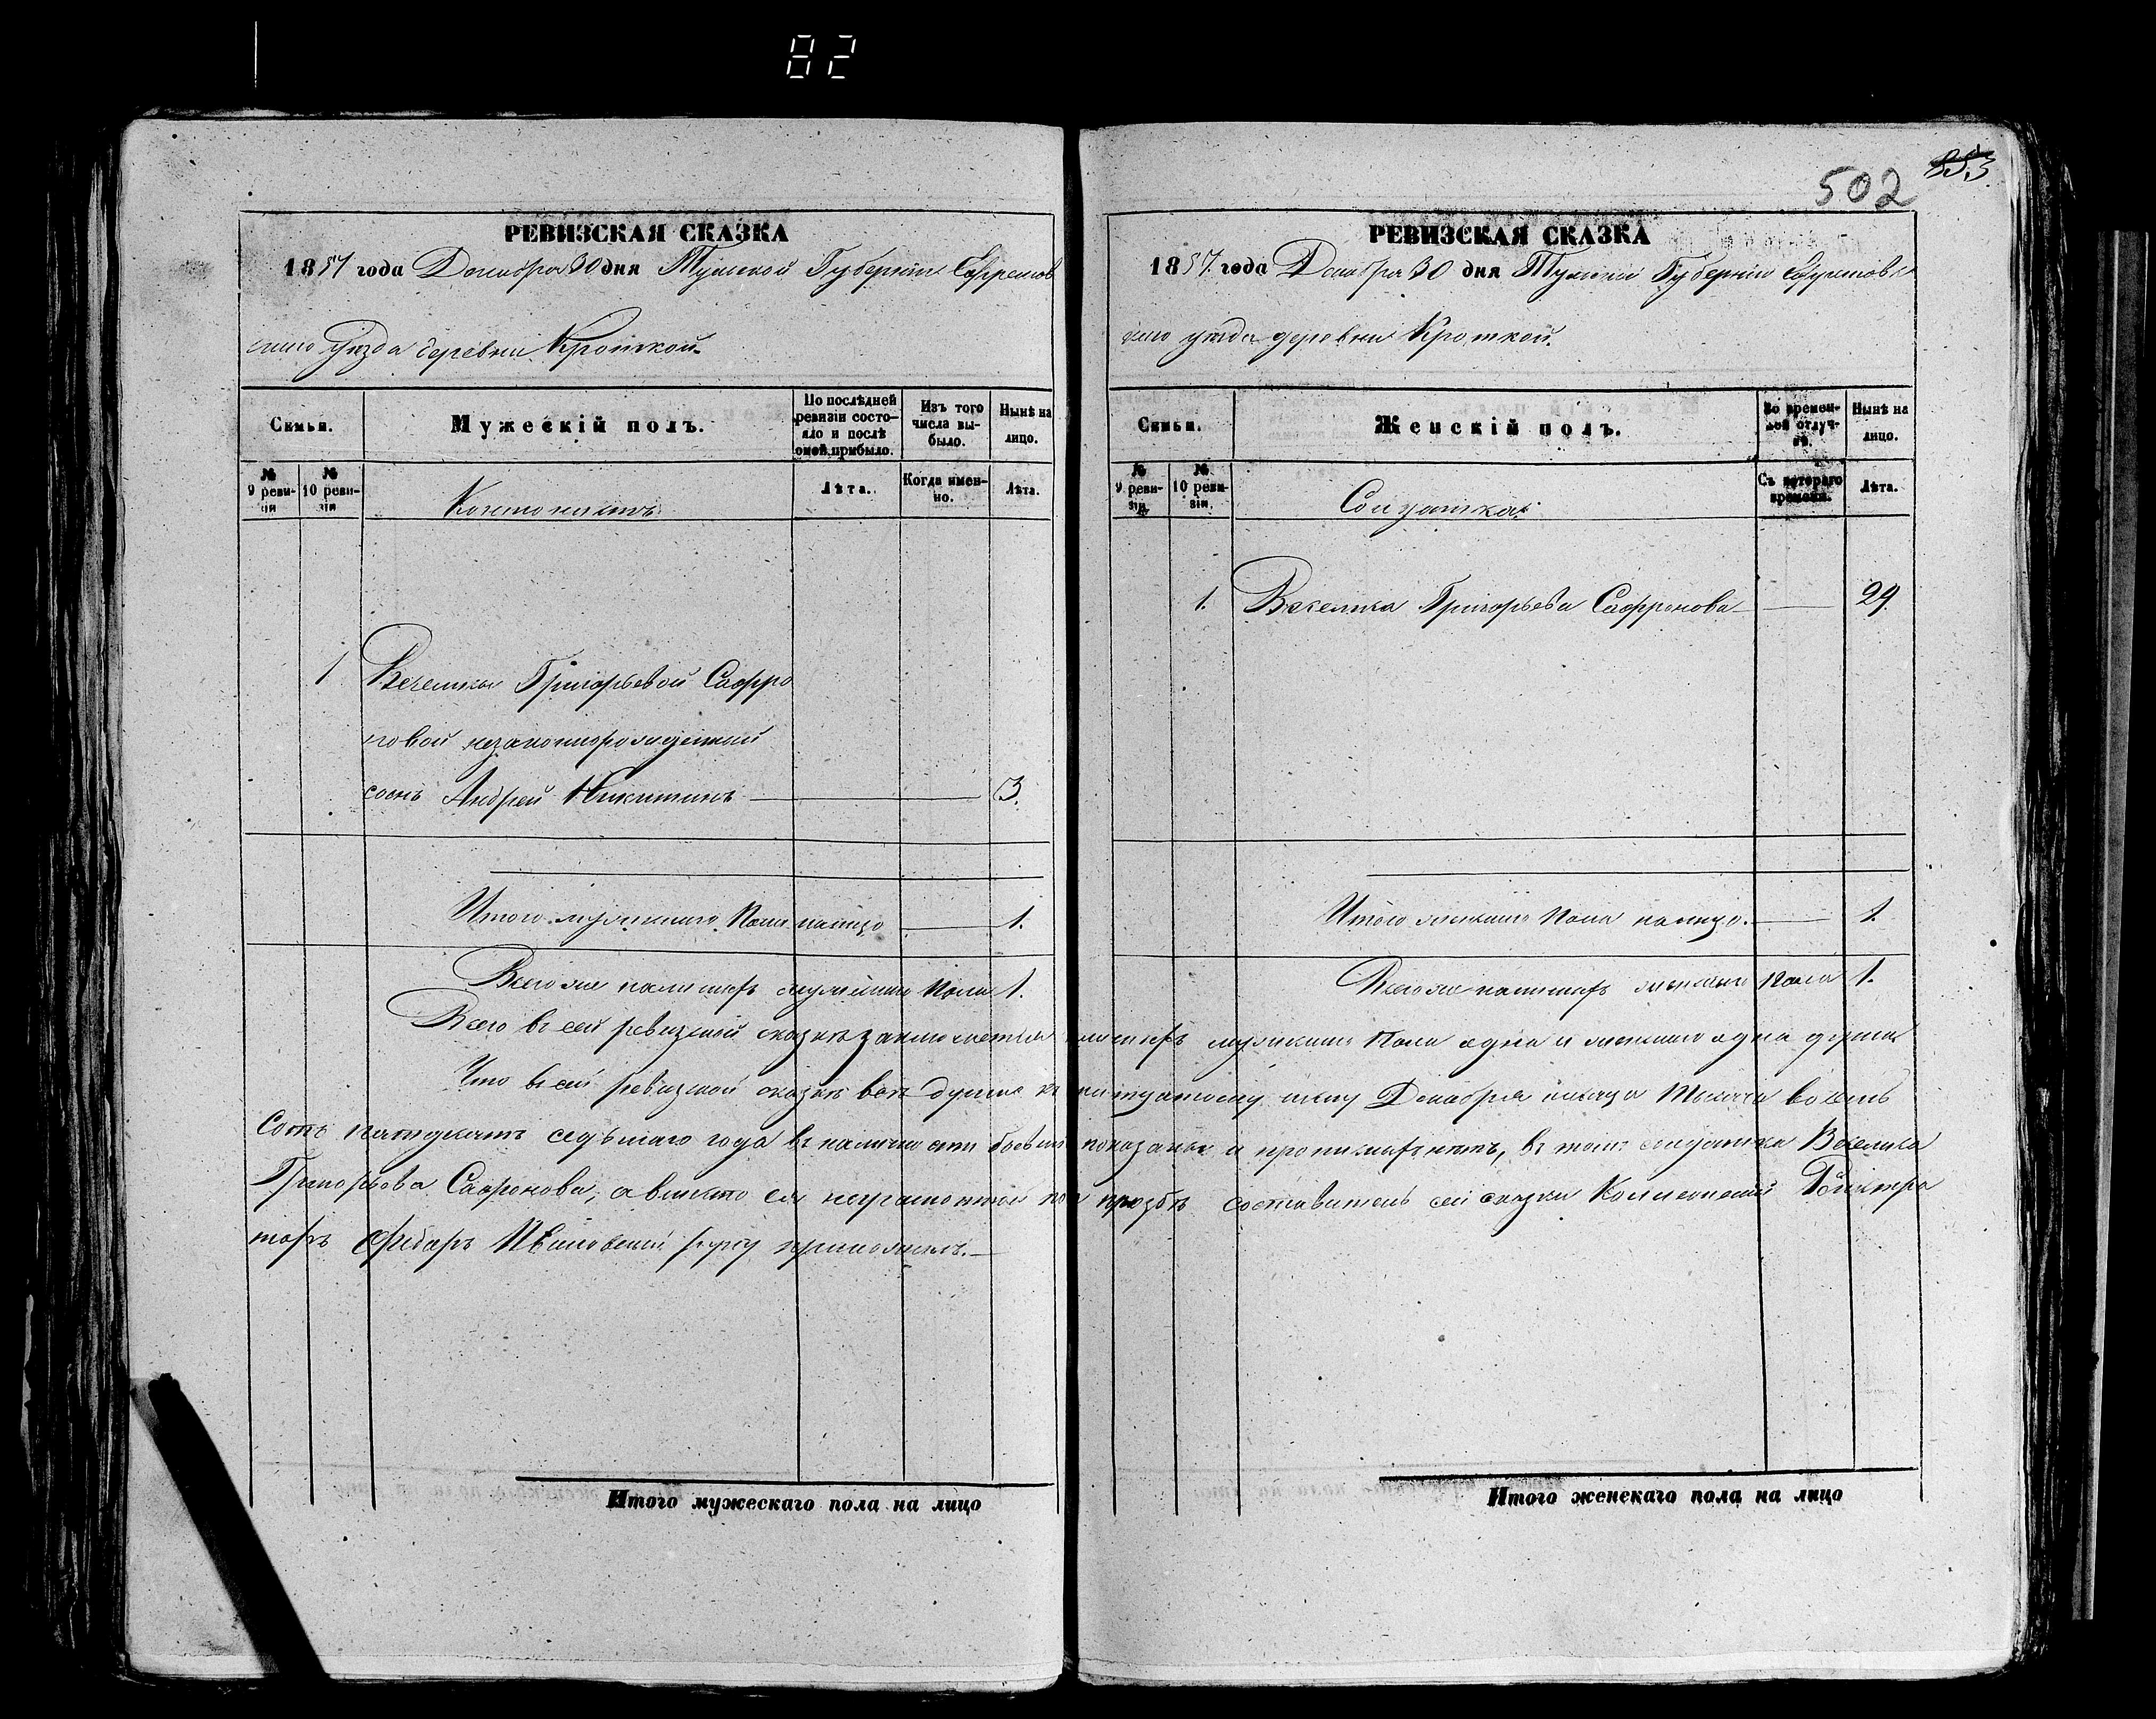 82
РЕВИЗСКАЯ СКАЗКА
1857 года Декабря 30 дня Тульской Губернии Ефремов
скаго Уезда деревни Кроткой.
Семьи.
Мужескій полъ.
По послѣдней ревизіи состояло и послѣ оной прибыло.
Изъ того числа выбыло.
Нынѣ на лицо.
№ 9 ревизіи
№ 10 ревизіи
Кантонистъ
Лѣта.
Когда именно.
Лѣта.
1 Григорьевой Сафро
новой незаконнорожденный
сынъ Андрей Никитинъ 3.
Итого мужскаго Пола налицо 1.
Всего же налицо мужскаго Пола 1.
502 853
РЕВИЗСКАЯ СКАЗКА
1857 года Декабря 30 дня Тульской Губерніи Ефремов
скаго уезда деревни Кроткой.
Семьи.
Женскій полъ.
Во временной отлучкѣ.
Нынѣ на лицо.
№ 9 ревизіи
№ 10 ревизіи
Солдатка
Съ котораго времени.
Лѣта.
1. Григорьева Сафронова 29
Итого женскаго Пола налицо. 1.
Всего же женскаго Пола 1.
Всего въ сей ревизской сказкѣ заключается мужскаго Пола одна и женскаго одна душа
Что въ сей ревизской сказкѣ всѣ души къ Декабря мѣсяца Тысяча восемь
Сотъ пятьдесятъ седьмаго года въ показаны и нѣтъ, въ томъ солдатка
Григорьева Сафронова, а вмѣсто ея неграмотной по прозбѣ составитель сей сказки Коллежскій Регистра
торъ руку приложилъ.
Итого мужескаго пола на лицо
Итого женскаго пола на лицо